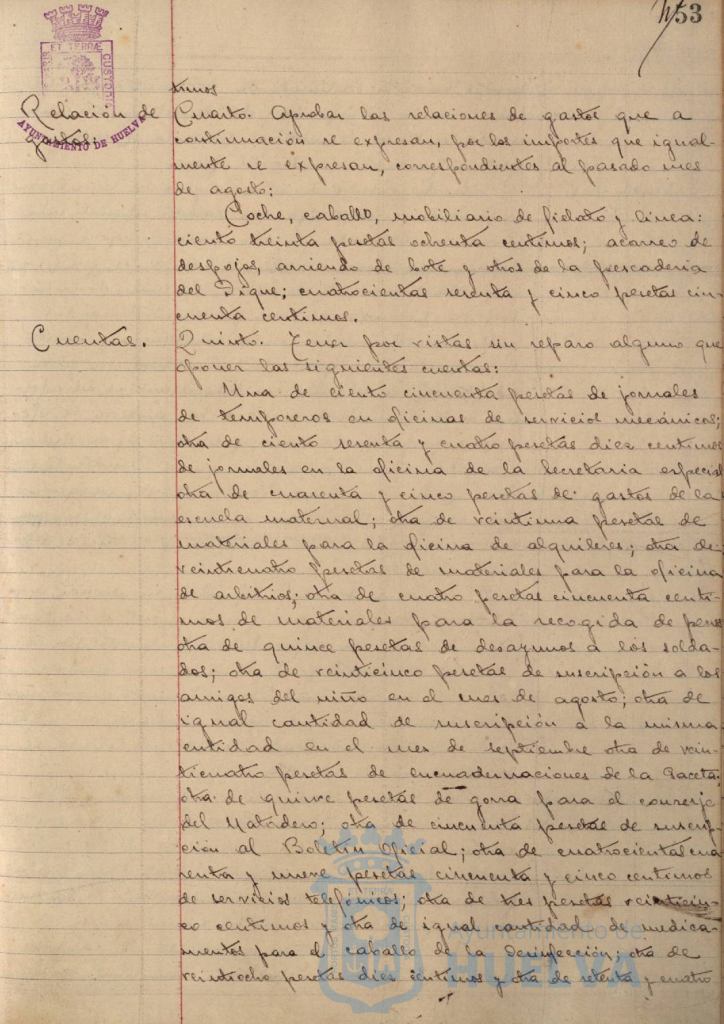 153
PORTUS MARIS ET TERRÆ CUSTODIA
AYUNTAMIENTO DE HUELVA
timos
Relación de
gastos.
Cuarto. Aprobar las relaciones de gastos que a
continuación se expresan, por los importes que igual-
mente se expresan, correspondientes al pasado mes
de agosto:
Coche, caballo, mobiliario de fielato y linea:
ciento treinta pesetas ochenta centimos; acarreo de
despojos, arriendo de bote y otros de la pescaderia
del Dique; cuatrocientas sesenta y cinco pesetas cin-
cuenta centimos.
Cuentas.
Quinto. Tener por vistas sin reparo alguno que
oponer las siguientes cuentas:
Una de ciento cincuenta pesetas de jornales
de temporeros en oficinas de servicios mecánicos;
otra de ciento sesenta y cuatro pesetas diez centimos
de jornales en la oficina de la Secretaria especial
otra de cuarenta y cinco pesetas de gastos de la
escuela maternal; otra de veintiuna pesetas de
materiales para la oficina de alquileres; otra de
veinticuatro pesetas de materiales para la oficina
de arbitrios; otra de cuatro pesetas cincuenta centi-
mos de materiales para la recogida de perros
otra de quince pesetas de desayunos a los solda-
dos; otra de veinticinco pesetas de suscripción a los
amigos del niño en el mes de agosto; otra de
igual cantidad de suscripción a la misma
entidad en el mes de septiembre otra de vein-
ticuatro pesetas de encuadernaciones de la Gaceta;
otra de quince pesetas de gorra para el conserje
del Matadero; otra de cincuenta pesetas de suscrip-
ción al Boletín Oficial; otra de cuatrocientas cua-
renta y nueve pesetas cincuenta y cinco centimos
de servicios telefónicos; otra de tres pesetas veinticin-
co centimos y otra de igual cantidad de medica-
mentos para el caballo de la Desinfección; otra de
veintiocho pesetas diez centimos y otra de setenta y cuatro
Ayuntamiento de
HUELVA